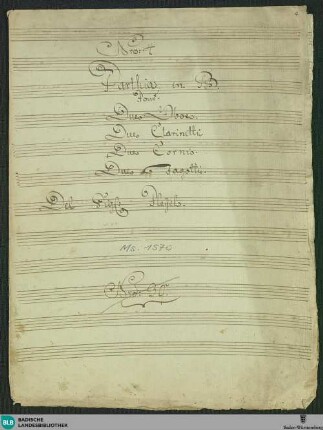 Parthia in B.
Due Oboe.
Due Clarinetti
Due Cornis.
Due Fagotti.
Del Pleÿel.
Ms. 1570
BLB BADISCHE
LANDESBIBLIOTHEK
Baden-Württemberg